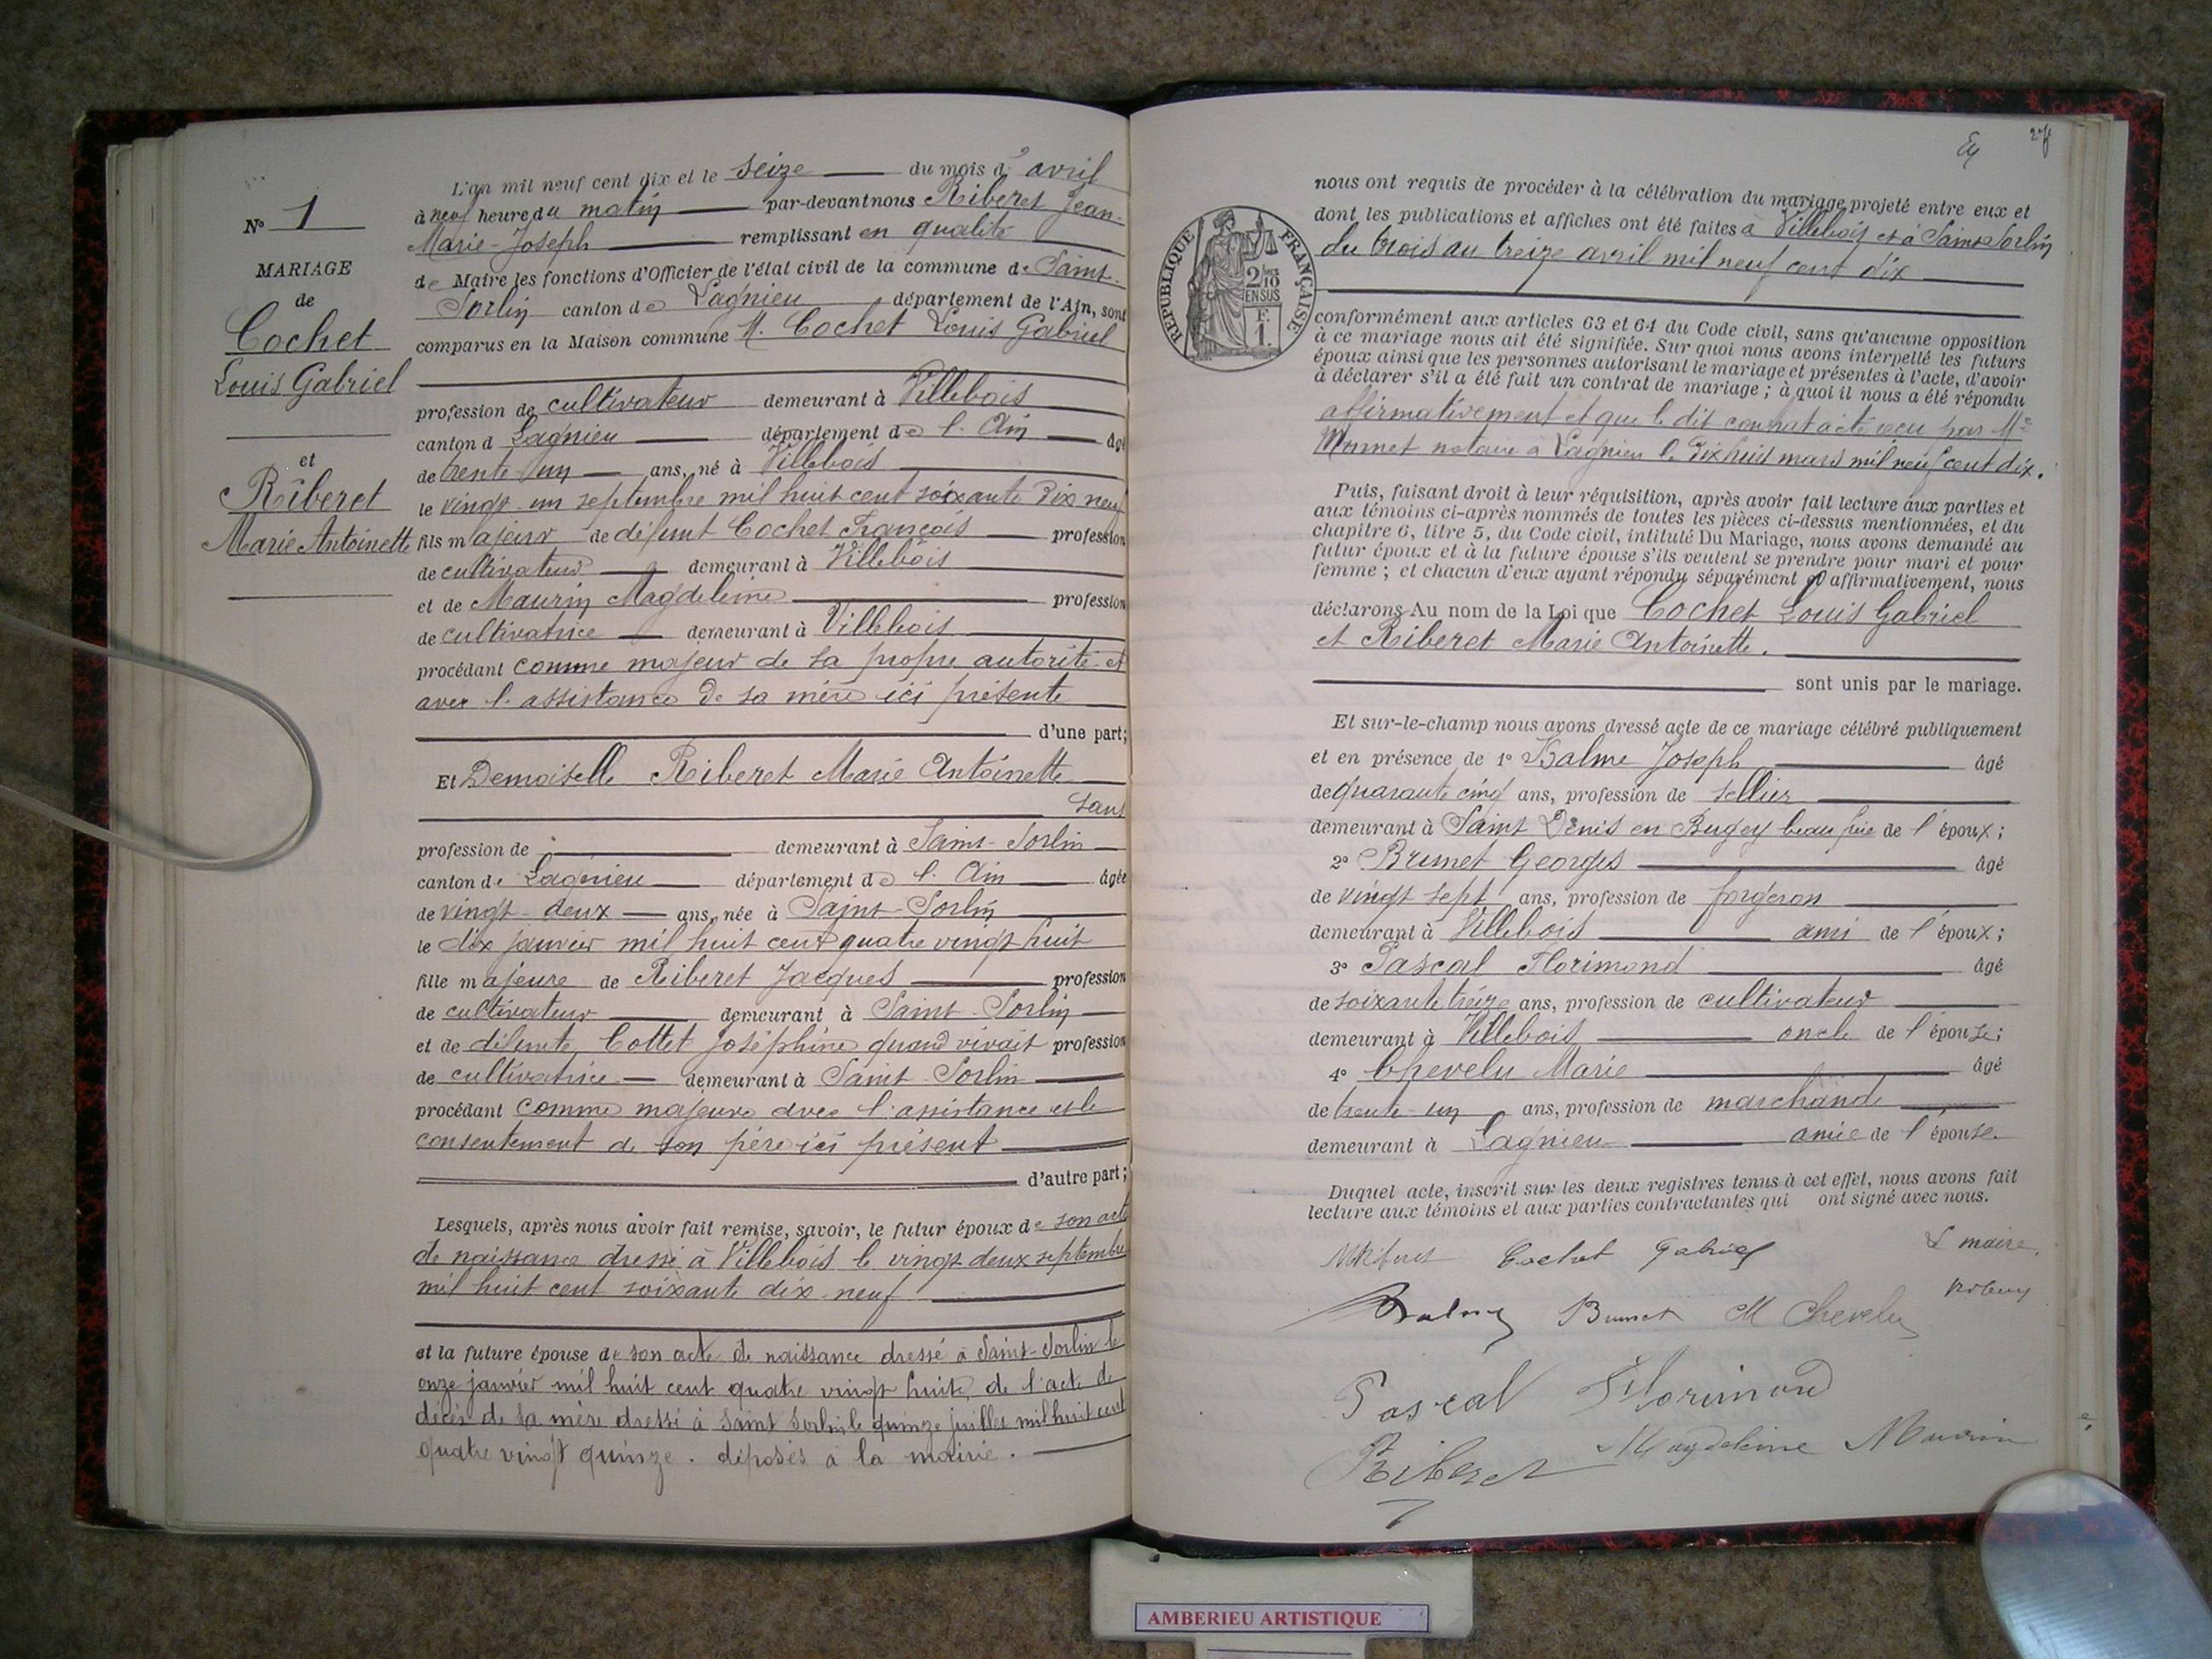 N° 1
MARIAGE
de
Cochet
Louis Gabriel
et
Riberet
Marie Antoinette
L'an mil neuf cent dix et le seize du mois d'avril
à neuf heure du matin par-devant nous Riberet Jean-
Marie-Joseph remplissant en qualité
de Maire les fonctions d'Officier de l'état civil de la commune de Saint-
Sorlin canton de Lagnieu département de l'Ain, sont
comparus en la Maison commune M. Cochet Louis Gabriel
profession de cultivateur demeurant à Villebois
canton d Lagnieu département de l'Ain âgé
de trente un ans, né à Villebois
le vingt-un septembre mil huit cent soixante dix neuf
fils majeur de défunt Cochet François profession
de cultivateur demeurant à Villebois
et de Maurin Magdeleine profession
de cultivatrice demeurant à Villebois
procédant comme majeur de sa propre autorité et
avec l'assistance de sa mère ici présente
d'une part;
Et Demoiselle Riberet Marie Antoinette
sans
profession de demeurant à Saint-Sorlin
canton de Lagnieu département de l'Ain âgée
de vingt-deux ans, née à Saint-Sorlin
le dix janvier mil huit cent quatre vingt huit
fille majeure de Riberet Jacques profession
de cultivateur demeurant à Saint-Sorlin
et de défunte Cottet Joséphine quand vivait profession
de cultivatrice demeurant à Saint-Sorlin
procédant comme majeure avec l'assistance et le
consentement de son père ici présent
d'autre part;
Lesquels, après nous avoir fait remise, savoir, le futur époux de son acte
de naissance dressé à Villebois le vingt deux septembre
mil huit cent soixante dix-neuf
et la future épouse de son acte de naissance dressé à Saint-Sorlin le
onze janvier mil huit cent quatre vingt huit, de l'acte de
décès de sa mère dressé à Saint Sorlin le quinze juillet mil huit cent
quatre vingt quinze. déposés à la mairie.
27
REPUBLIQUE FRANÇAISE
2/10
EN SUS
F.
1.
nous ont requis de procéder à la célébration du mariage projeté entre eux et
dont les publications et affiches ont été faites à Villebois et à Saint-Sorlin
du trois au treize avril mil neuf cent dix
conformément aux articles 63 et 64 du Code civil, sans qu'aucune opposition
à ce mariage nous ait été signifiée. Sur quoi nous avons interpellé les futurs
époux ainsi que les personnes autorisant le mariage et présentes à l'acte, d'avoir
à déclarer s'il a été fait un contrat de mariage ; à quoi il nous a été répondu
affirmativement et que le dit contrat a été reçu par Me
notaire à Lagnieu le dix huit mars mil neuf cent dix.
Puis, faisant droit à leur réquisition, après avoir fait lecture aux parties et
aux témoins ci-après nommés de toutes les pièces ci-dessus mentionnées, et du
chapitre 6, titre 5, du Code civil, intitulé Du Mariage, nous avons demandé au
futur époux et à la future épouse s'ils veulent se prendre pour mari et pour
femme ; et chacun d'eux ayant répondu séparément et affirmativement, nous
déclarons Au nom de la Loi que Cochet Louis Gabriel
et Riberet Marie Antoinette.
sont unis par le mariage.
Et sur-le-champ nous avons dressé acte de ce mariage célébré publiquement
et en présence de 1° Balme Joseph âgé
de quarante cinq ans, profession de sellier
demeurant à Saint Denis en Bugey beau frère de l'époux;
2° Brunet Georges âgé
de vingt sept ans, profession de forgeron
demeurant à Villebois ami de l'époux;
3° Pascal Florimond âgé
de soixante treize ans, profession de cultivateur
demeurant à Villebois oncle de l'épouse;
4° Chevelu Marie âgé
de trente-un ans, profession de marchande
demeurant à Lagnieu amie de l'épouse.
Duquel acte, inscrit sur les deux registres tenus à cet effet, nous avons fait
lecture aux témoins et aux parties contractantes qui ont signé avec nous.
Cochet Gabriel Le maire,
Balme Brunet M Chevelu
Pascal Florimond
Riberet Magdeleine Maurin
AMBERIEU ARTISTIQUE